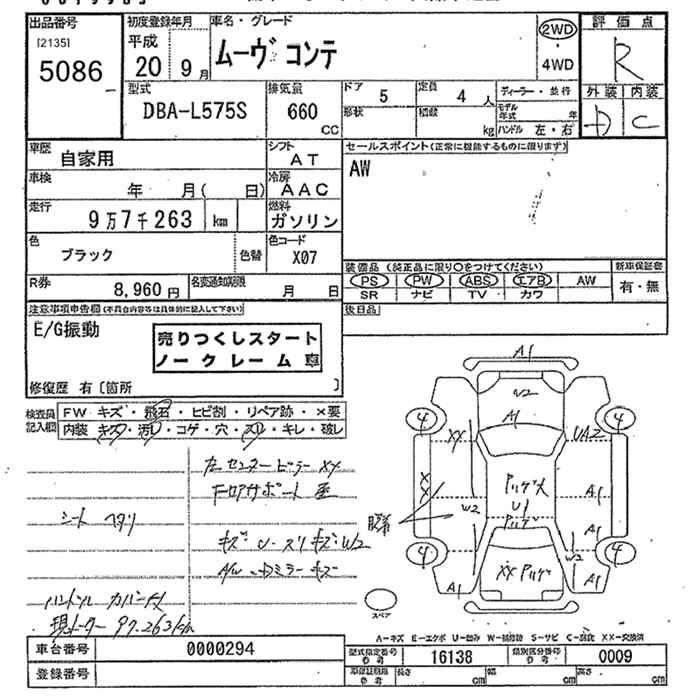 出品番号
[2135]
5086
初度登録年月
平成
20 9月
車名・グレード
ムーヴ コンテ
2WD
・
4WD
評価点
R
外装 内装
D C
型式
DBA-L575S
排気量
660
CC
ドア 5
定員 4 人
形状
積数 kg
ディーラー・並行
モデル年式 年
ハンドル 左・右
車歴 自家用
シフト AT
車検 年 月( 日)
冷房 AAC
走行 9万7千263 km
燃料 ガソリン
色 ブラック
色替
色コード X07
R券 8,960円
名変通知期限 月 日
セールスポイント(正常に機能するものに限ります)
AW
装備品(純正品に限り○をつけてください)
新車保証書
PS PW ABS エアB AW
SR ナビ TV カワ
有・無
後日品
注意事項申告欄(不具合内容等は具体的に記入して下さい)
E/G振動
売りつくしスタート
ノークレーム 車
修復歴 有〔箇所 〕
検査員記入欄
FW キズ・飛石・ヒビ割・リペア跡・×要
内装・キズ・汚レ・コゲ・穴・スレ・キレ・破レ
左センターピラー XX
F
シート ヘタリ
キズ・U・スリキズ・W2
A/W ミラー キズ
ハンドル カバー
現メーター 97.263km
A1
W2
A1
4
4
XX
UA2
XX
W2
U1
A1
A1
W2
4
4
A1
XX
A1
A1
スペア
A-キズ E-エクボ U-凹み W-補修跡 S-サビ C-腐蝕 XX-交換済
車台番号 0000294
登録番号
型式指定番号 参考 16138
類別区分番号 参考 0009
車両証明 参考 長さ cm 幅 cm 高さ cm